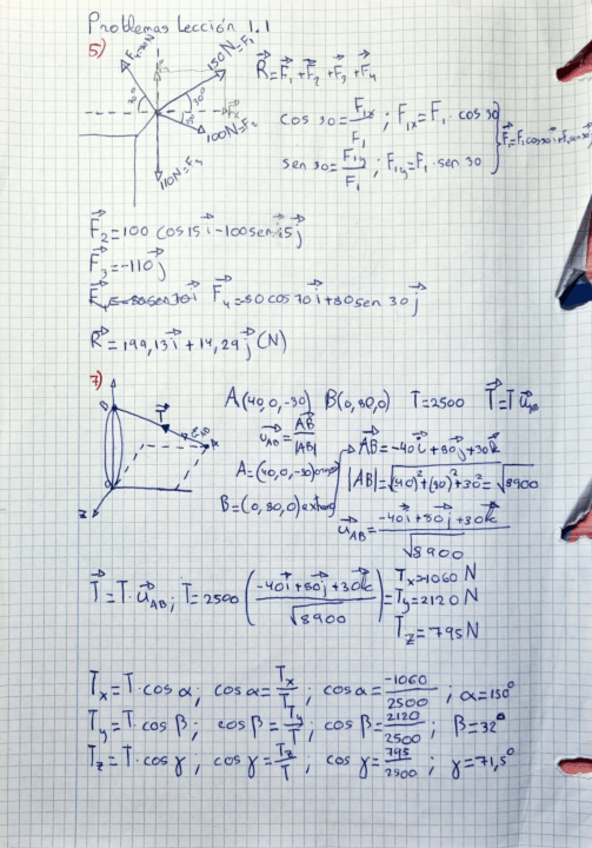 Problemas Lección 1.1
5)
150N=F₁
30°
100N=F₂
110N=F₃
R⃗=F⃗₁+F⃗₂+F⃗₃+F⃗₄
cos 30=F₁ₓ/F₁ ; F₁ₓ=F₁·cos 30
sen 30=F₁y/F₁ ; F₁y=F₁·sen 30
F⃗₂=100 cos15 i⃗-100sen15 j⃗
F⃗₃=-110 j⃗
F⃗₄=-80 cos 70 i⃗+80 sen 30 j⃗
R⃗=199,13 i⃗+14,29 j⃗ (N)
7)
A(40,0,-30) B(0,80,0) T=2500 T⃗=T u⃗AB
u⃗AB=AB⃗/|AB| AB⃗=-40i⃗+80j⃗+30k⃗
A=(40,0,-30) |AB|=√(40)²+(80)²+30²=√8900
B=(0,80,0) u⃗AB=-40i⃗+80j⃗+30k⃗/√8900
T⃗=T·u⃗AB; T⃗=2500(-40i⃗+80j⃗+30k⃗/√8900)=
Tx=1060 N
Ty=2120 N
Tz=795 N
Tx=T·cos α; cos α=Tx/T; cos α=-1060/2500; α=150°
Ty=T·cos β; cos β=Ty/T; cos β=2120/2500; β=32°
Tz=T·cos γ; cos γ=Tz/T; cos γ=795/2500; γ=71,5°